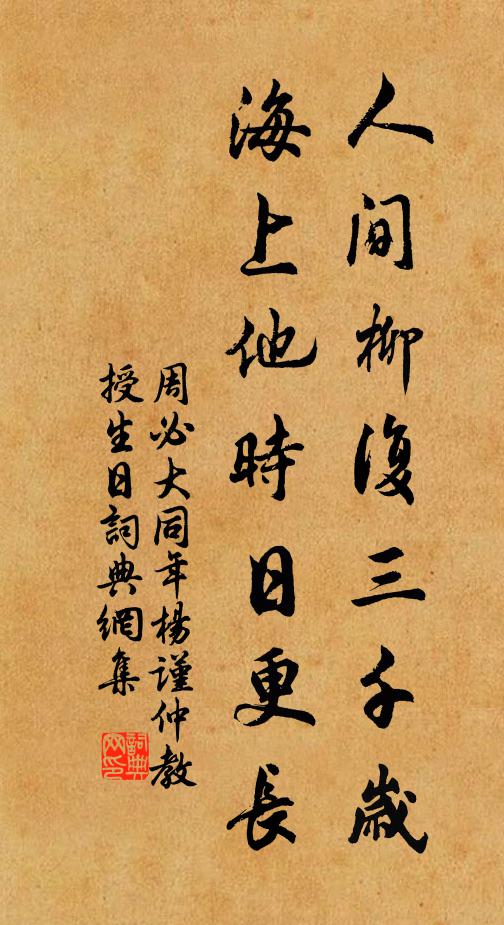 人间柳復三千歲
海上他時日更長
周必大同年楊謹仲教
授生日詞典網集
詞典
网印